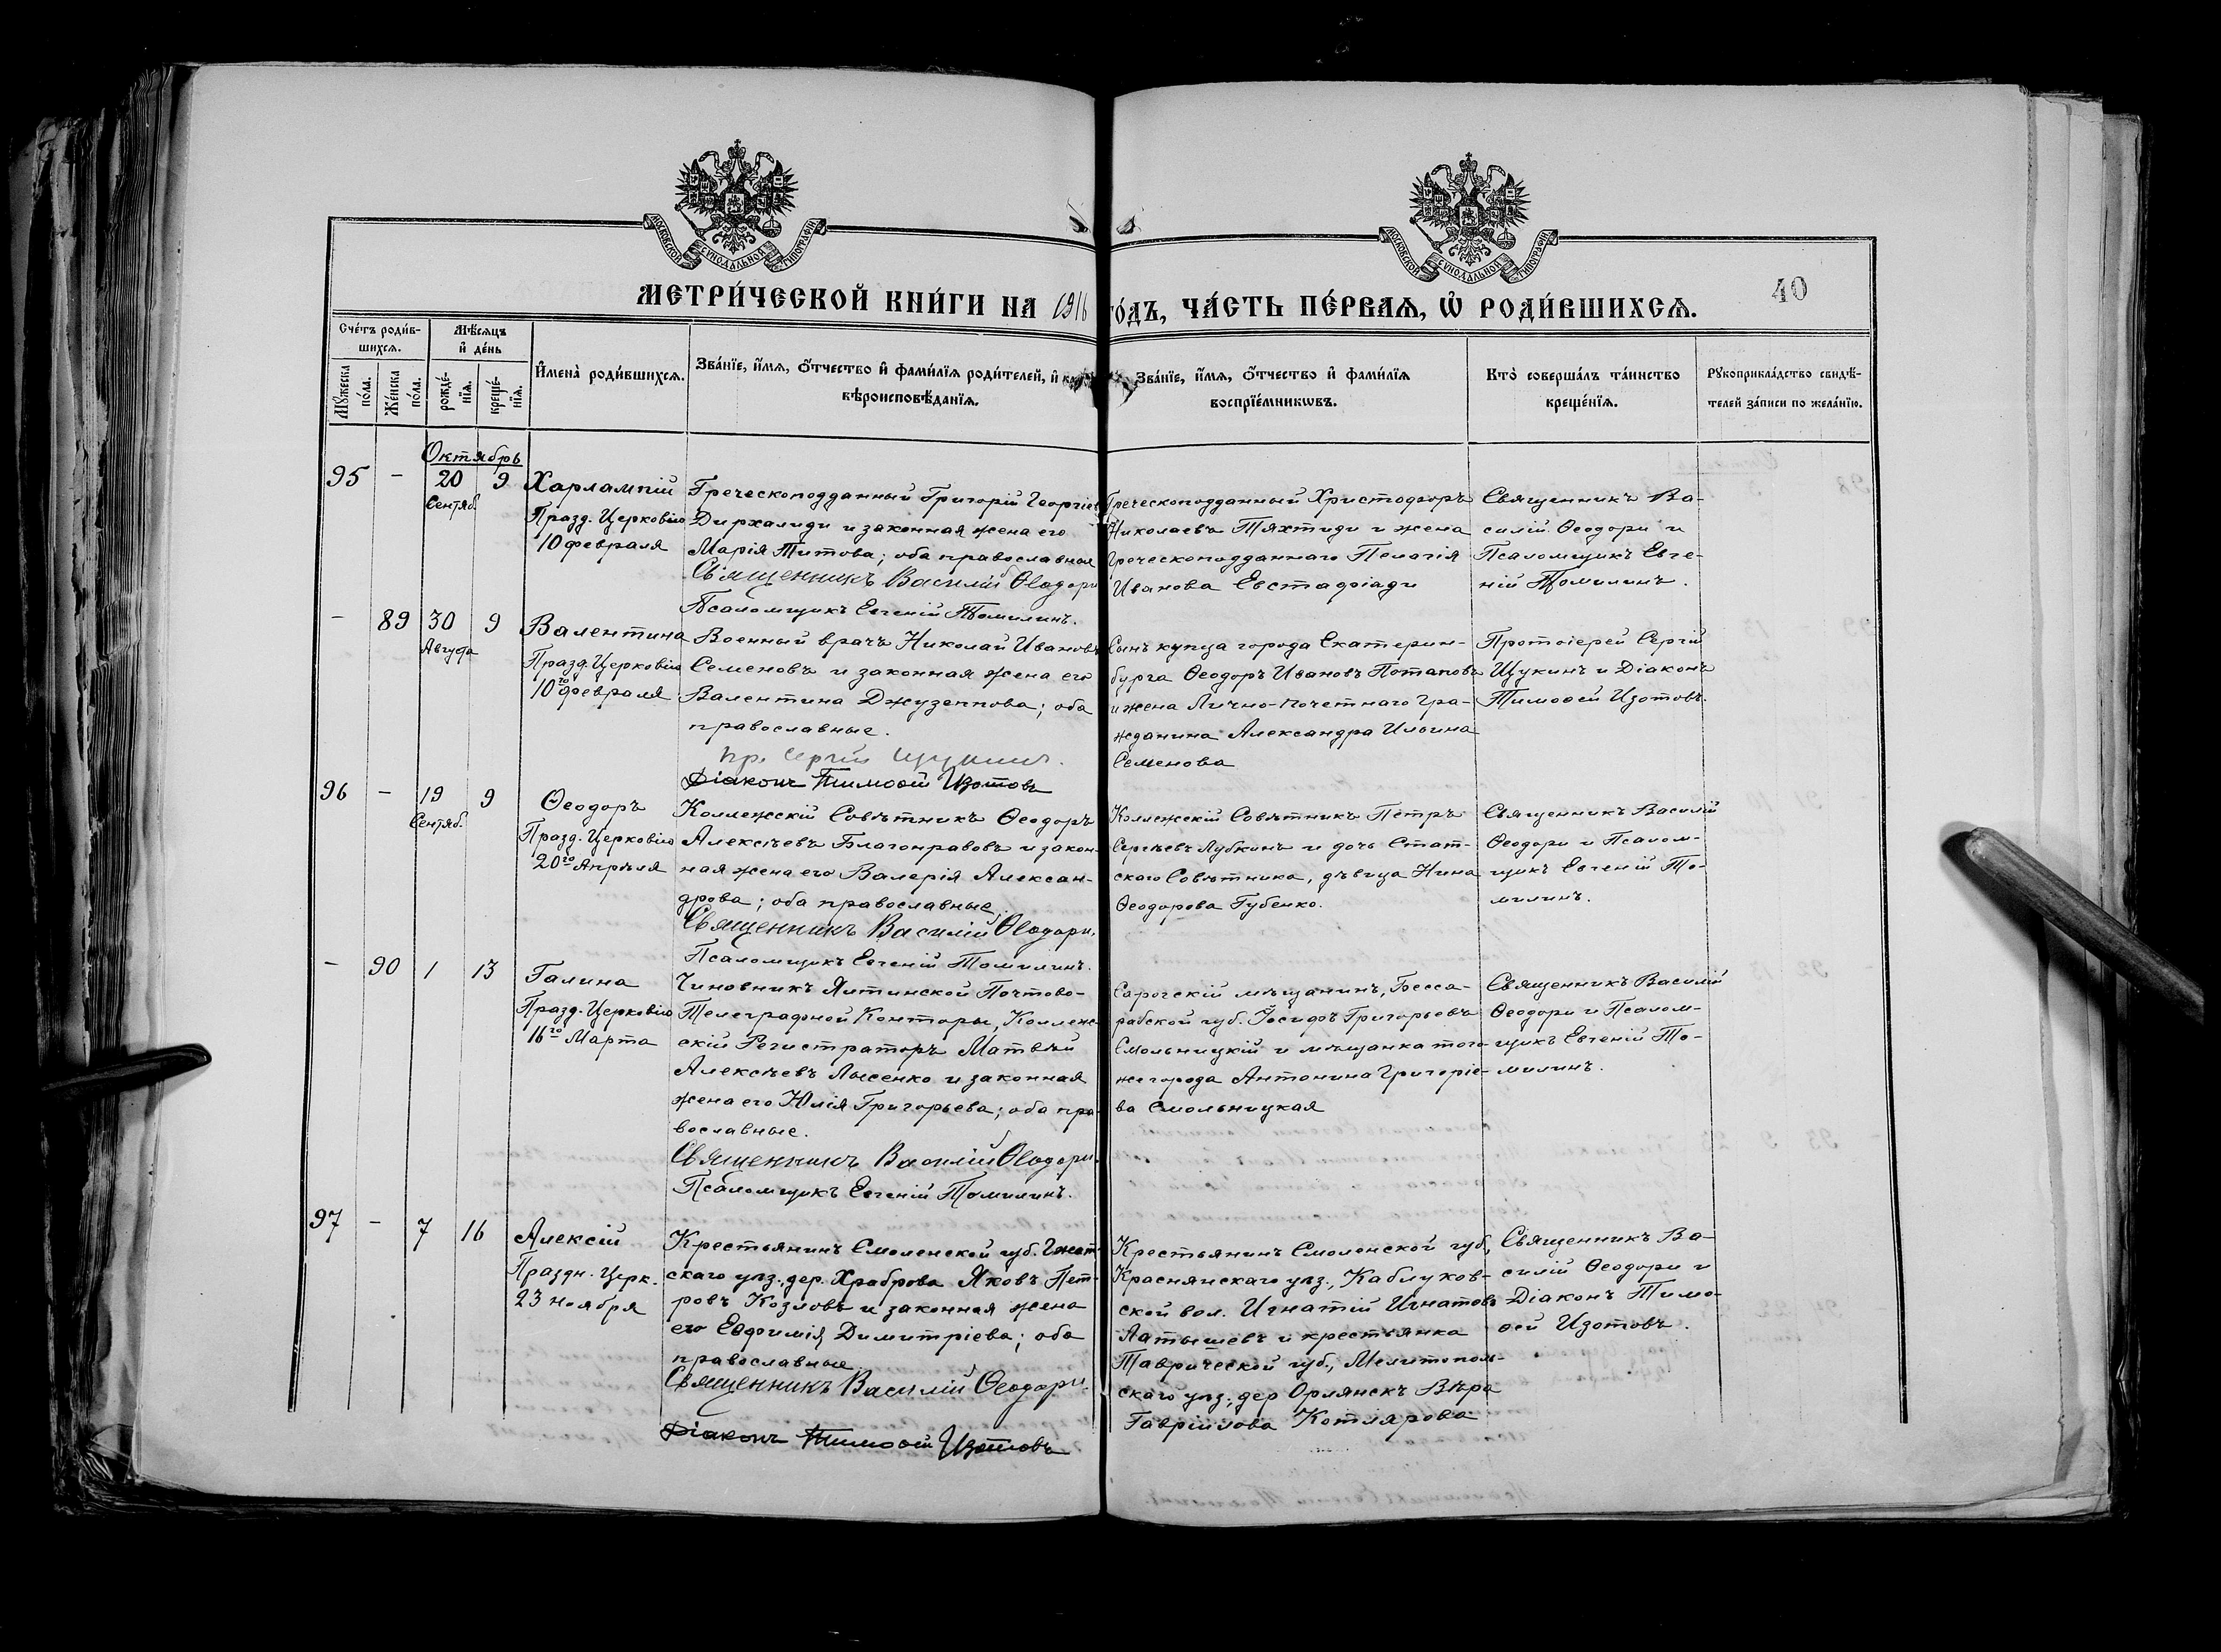 МОСКОВСКОЙ СУНОДАЛЬНОЙ ТИПОГРАФІИ
МОСКОВСКОЙ СУНОДАЛЬНОЙ ТИПОГРАФІИ
МЕТРИ́ЧЕСКОЙ КНИ́ГИ НА 1916 ГО́ДЪ, ЧА́СТЬ ПЕ́РВАѦ, Ѡ҆ РОДИ́ВШИХСѦ.
40
Сче́тъ роди́в-
шихсѧ.
Мѣ́сѧцъ
и҆ де́нь
Мꙋ́жеска
по́ла.
Же́нска
по́ла.
рожде́-
нїѧ.
креще́-
нїѧ.
И҆мена̀ роди́вшихсѧ.
Зва́нїе, и҆́мѧ, ѻ҆́тчество и҆ фами́лїѧ роди́телей, и҆
вѣроисповѣ́данїѧ.
Зва́нїе, и҆́мѧ, ѻ҆́тчество и҆ фами́лїѧ
воспрїе́мникѡвъ.
Кто̀ соверша́лъ та́инство
креще́нїѧ.
Рꙋкоприкла́дство свидѣ́-
телей за́писи по жела́нїю.
Октябрь
95 - 20 9
Сентяб.
Харлампій
Празд. Церковію
10 февраля
Греческоподданный Григорій Георгіев
Дирхалиди и законная жена его
Марія Титова; оба православные
Священникъ Василій Ѳеодори
Псаломщикъ Евгеній Томилинъ.
Греческоподданный Христофоръ
Николаевъ Тяхтиди и жена
Греческоподданнаго Пелагія
Иванова Евстафіади
Священникъ Ва-
силій Ѳеодори и
Псаломщикъ Евге-
ній Томилинъ.
- 89 30 9
Августа
Валентина
Празд. Церковію
10го февраля
Военный врачъ Николай Ивановъ
Семеновъ и законная жена его
Валентина Джузеппова; оба
православные.
Пр. Сергій Щукинъ.
Діаконъ Тимоѳей Изотовъ
Сынъ купца города Екатерин-
бурга Ѳеодоръ Ивановъ Потаповъ
и жена Лично-почетнаго Гра-
жданина Александра Ильина
Семенова
Протоіерей Сергій
Щукинъ и Діаконъ
Тимоѳей Изотовъ.
96 - 19 9
Сентяб.
Ѳеодоръ
Празд. Церковію
20го Апрѣля
Коллежскій Совѣтникъ Ѳеодоръ
Алексѣевъ Благонравовъ и закон-
ная жена его Валерія Алексан-
дрова; оба православные.
Священникъ Василій Ѳеодори.
Псаломщикъ Евгеній Томилинъ.
Коллежскій Совѣтникъ Петръ
Сергѣевъ Лубкинъ и дочь Стат-
скаго Совѣтника, дѣвица Нина
Ѳеодорова Губенко.
Священникъ Василій
Ѳеодори и Псалом-
щикъ Евгеній То-
милинъ.
- 90 1 13
Галина
Празд. Церковію
16го Марта
Чиновникъ Ялтинской Почтово-
Телеграфной Конторы, Коллеж-
скій Регистраторъ Матвѣй
Алексѣевъ Лысенко и законная
жена его Юлія Григорьева; оба пра-
вославные.
Священникъ Василій Ѳеодори.
Псаломщикъ Евгеній Томилинъ.
Сорокскій мѣщанинъ, Бесса-
рабской губ. Іосифъ Григорьевъ
Смольницкій и мѣщанка того-
же города Антонина Григоріе-
ва Смольницкая
Священникъ Василій
Ѳеодори и Псалом-
щикъ Евгеній То-
милинъ.
97 - 7 16
Алексій
Праздн. Церк.
23 ноября
Крестьянинъ Смоленской губ. Гжат-
скаго уѣз. дер. Храброва Яковъ Пет-
ровъ Козловъ и законная жена
его Евфимія Димитріева; оба
православные
Священникъ Василій Ѳеодори.
Діаконъ Тимоѳей Изотовъ
Крестьянинъ Смоленской губ.,
Краснянскаго уѣз., Каблуков-
ской вол. Игнатій Игнатовъ
Латышевъ и крестьянка
Таврической губ., Мелитополь-
скаго уѣз., дер Орлянскъ Вѣра
Гавріилова Котлярова
Священникъ Ва-
силій Ѳеодори и
Діаконъ Тимо-
ѳей Изотовъ.